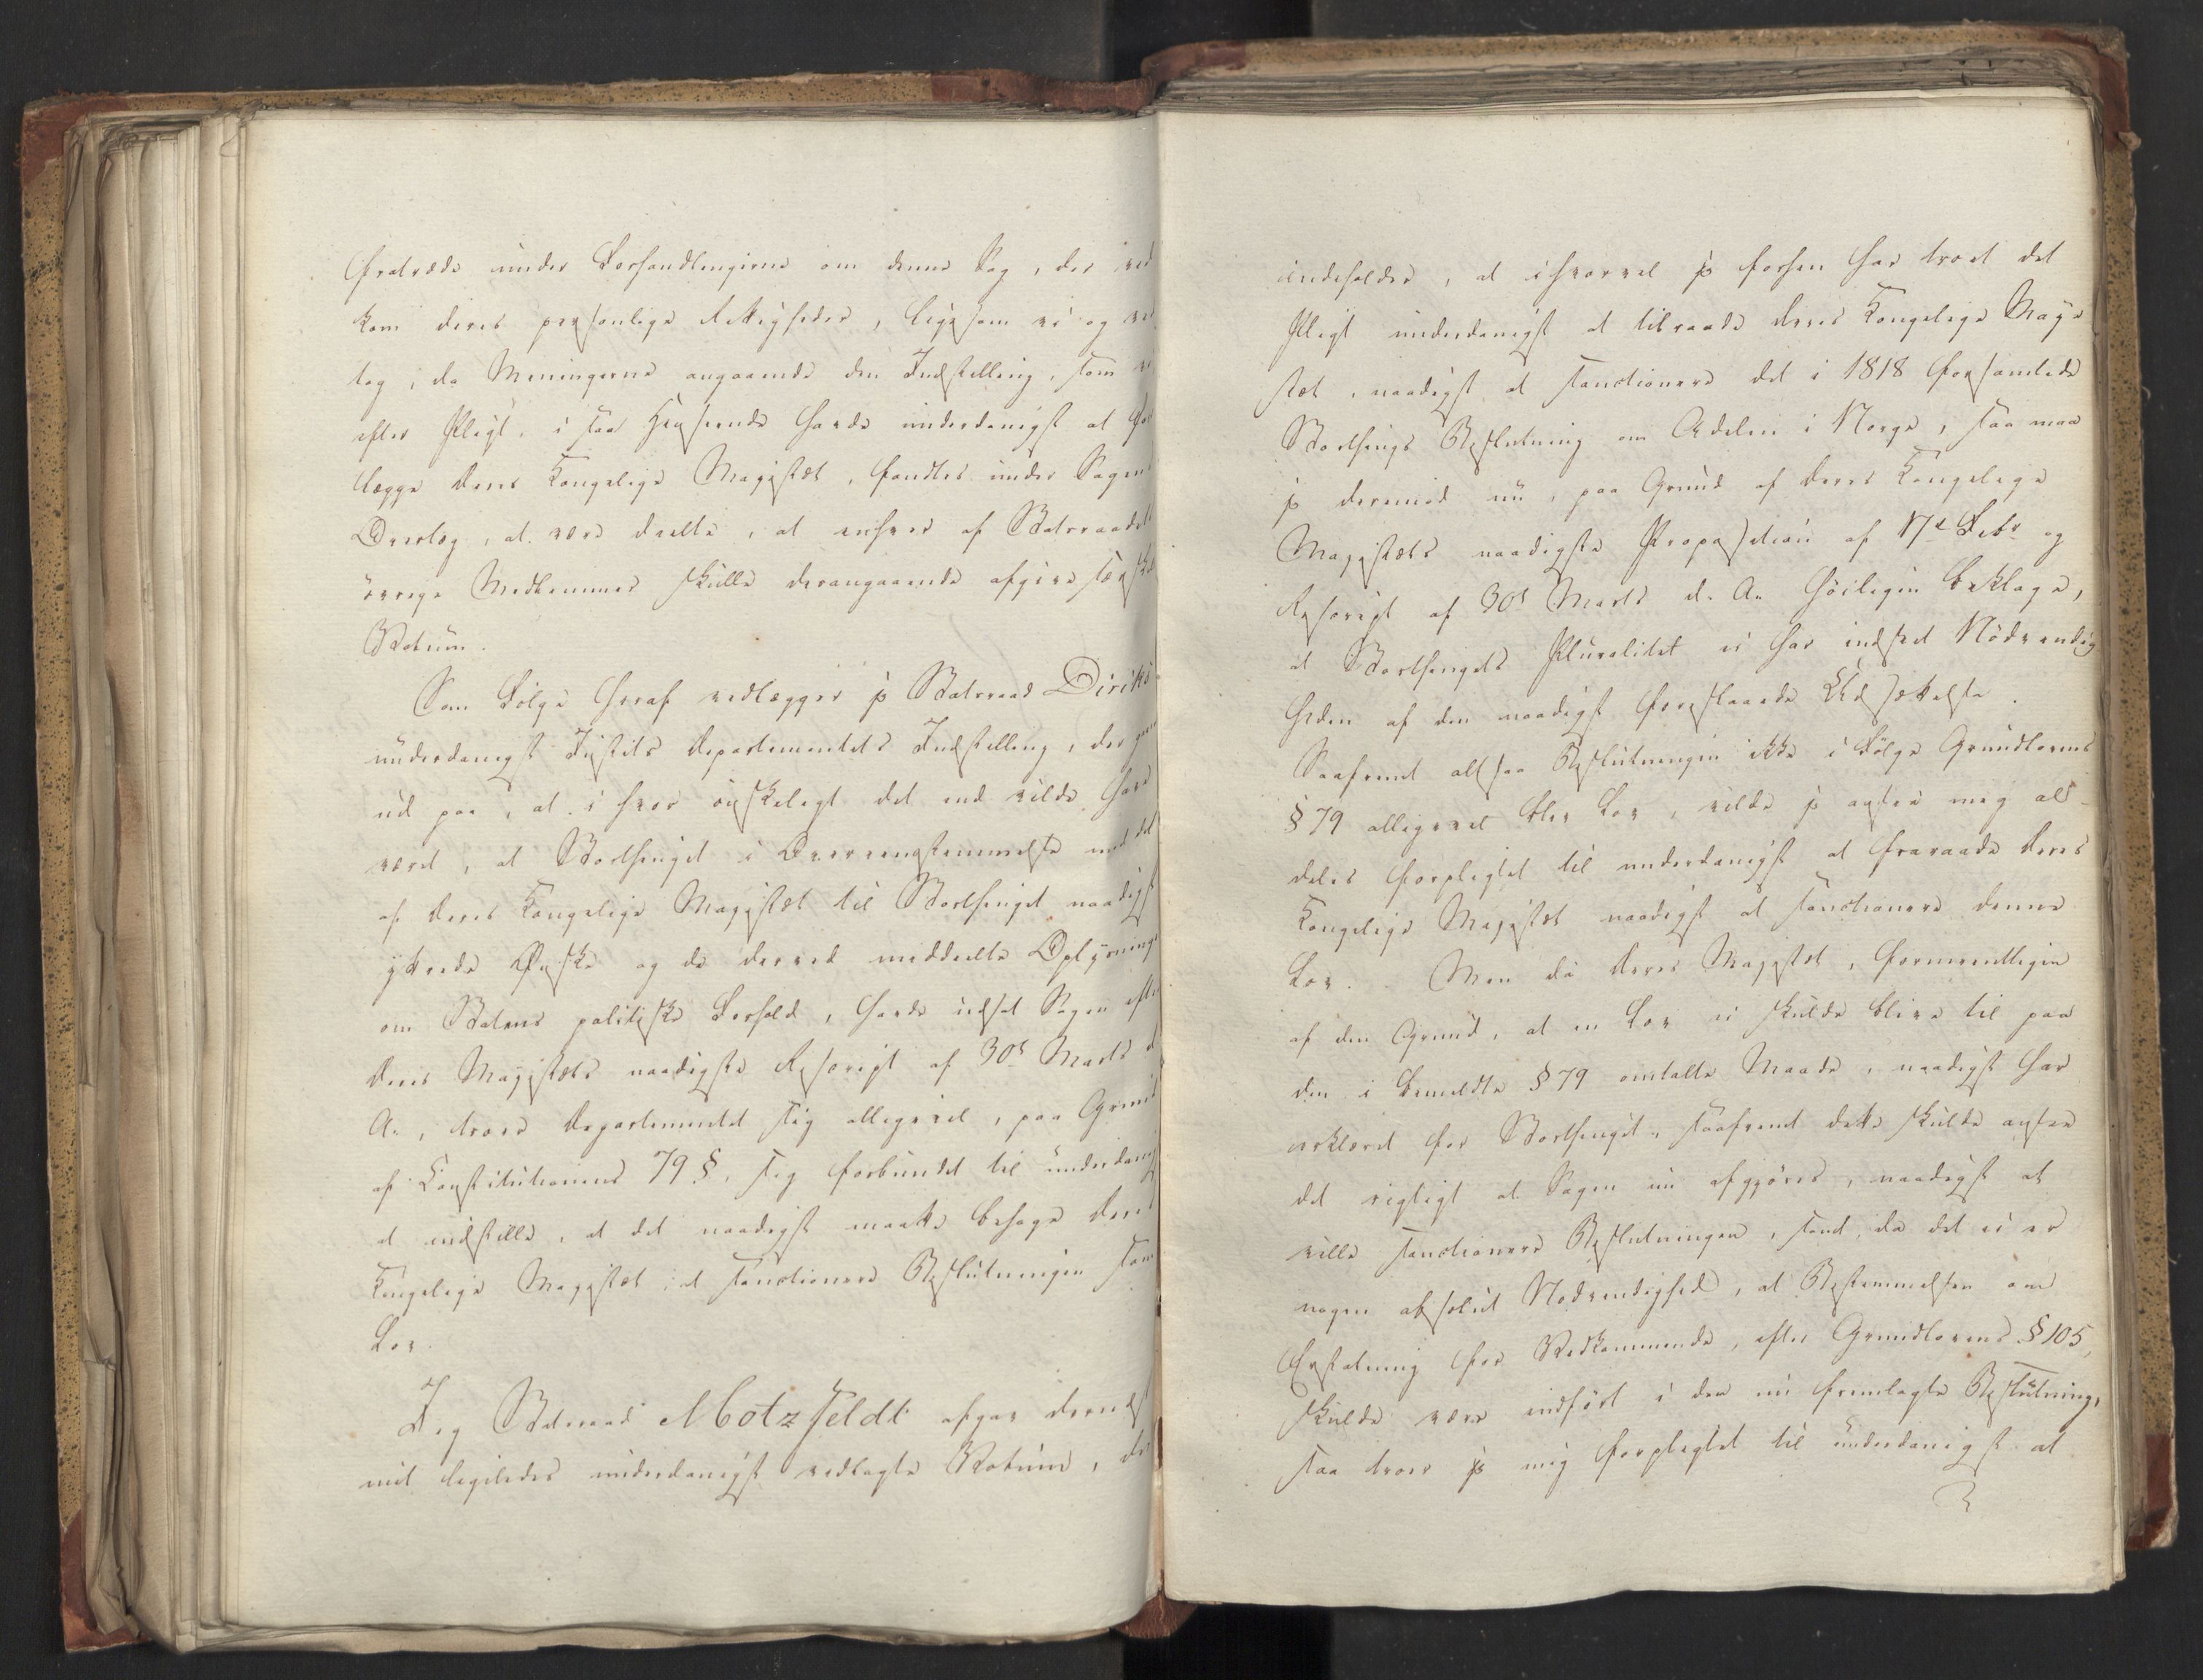 fratræde under Forhandlingerne om denne Sag, der ved
kom deres personlige Rettigheder, ligesom vi og ved
tog, da Meningerne angaaende den Indstilling, som vi
efter Pligt, i saa Henseende havde underdanigst at fore
lægge Deres Kongelige Majestæt, fandtes under Sagens
Overlæg, at være deelte, at enhver af Statsraadets
övrige Medlemmer skulle derangaaende afgive særskilt
Votum.
Som Fölge heraf vedlægger jeg Statsraad Diriks
underdanigst Justits Departementets Indstilling, der gaaer
ud paa, at i hvor önskeligt det end vilde have
været, at Storthinget i Overeensstemmelse med det
af Deres Kongelige Majestæt til Storthinget naadigst
yttrede Önske og de derved meddeelte Oplysninger
om Statens politiske Forhold, havde udsat Sagen efter
Deres Majestæts naadigste Rescript af 30t Marts d.
A., troer Departementet sig alligevel, paa Grund
af Constitutionens 79 §, sig forbundet til underdanigst
at indstille, at det naadigst maatte behage Deres
Kongelige Majestæt at sanctionere Beslutningen som
Lov.
Jeg Statsraad Motzfeldt afgav dernæst
mit ligeledes underdanigst vedlagte Votum, der
indeholder, at ihvorvel jeg forhen har troet det
Pligt underdanigst at tilraade Deres Kongelige Maje
stæt, naadigst at sanctionere det i 1818 forsamlede
Storthings Beslutning om Adelen i Norge, saa maa
jeg derimod nu, paa Grund af Deres Kongelige
Majestæts naadigste Proposition af 17d Febr og
Rescript af 30t Marts d. A. höiligen beklage,
at Storthingets Pluralitet ei har indseet Nödvendig
heden af den naadigst foreslaaede Udsættelse.
Saafremt altsaa Beslutningen ikke i Fölge Grundlovens
§ 79 alligevel blev Lov, vilde jeg ansee mig al-
deles forpligtet til underdanigst at fraraade Deres
Kongelige Majestæt naadigst at sanctionere denne
Lov. Men da Deres Majestæt, formeentligen
af den Grund, at en Lov ei skulde blive til paa
den i bemeldte § 79 omtalte Maade, naadigst har
erklæret for Storthinget, saafremt dette skulde ansee
det rigtigt at Sagen nu afgjöres, naadigst at
ville sanctionere Beslutningen, samt da det ei er
nogen absolut Nödvendighed, at Bestemmelsen om
Erstatning for Vedkommende, efter Grundlovens § 105,
skulde være indfört i den nu fremlagte Beslutning,
saa troer jeg mig forpligtet til underdanigst at